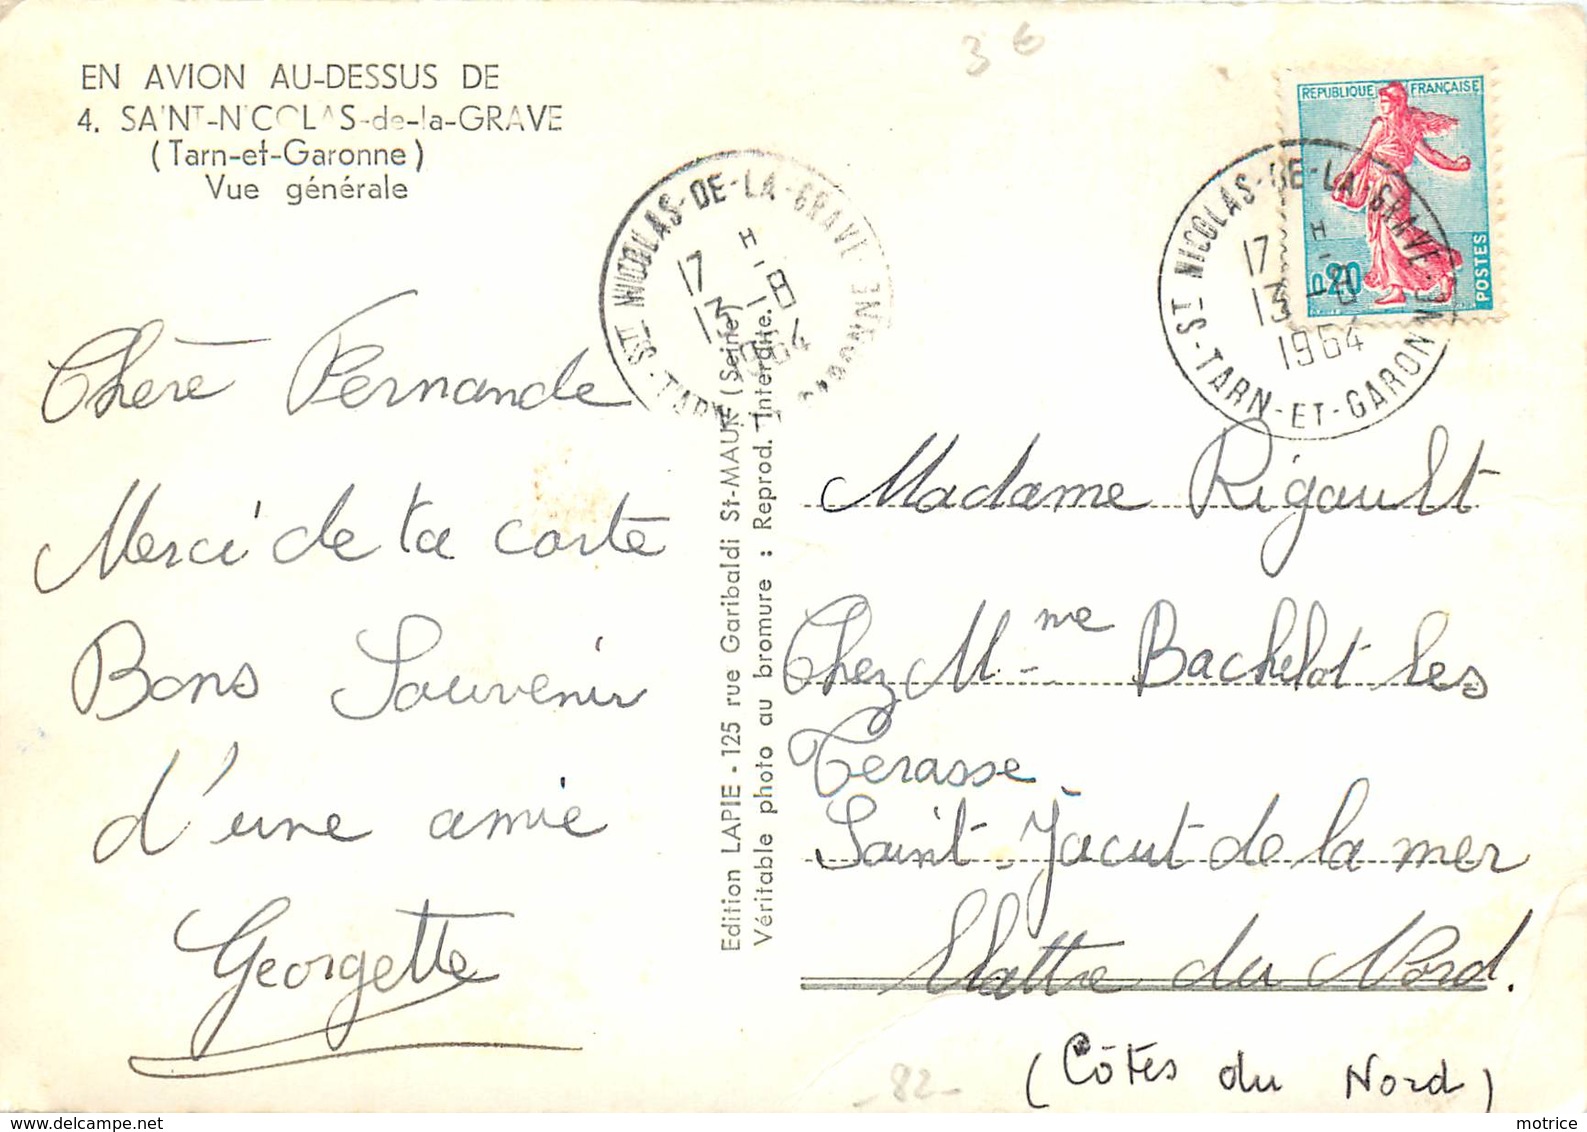 EN AVION AU-DESSUS DE
4. SAINT-NICOLAS-de-la-GRAVE
(Tarn-et-Garonne)
Vue générale
3€
REPUBLIQUE FRANÇAISE
0,20
POSTES
ST NICOLAS-DE-LA-GRAVE
TARN GARONNE
17 H
13-8
1964
ST NICOLAS-DE-LA-GRAVE
TARN-ET-GARONNE
17 H
13-8
1964
Chère Fernande
Merci de ta carte
Bons Souvenir
d'une amie
Georgette
Edition LAPIE - 125 rue Garibaldi St-MAUR (Seine)
Véritable photo au bromure : Reprod. Interdite.
Madame Rigault
Chez Mme Bachelot les
Terasse
Saint-Jacut de la mer
du Nord.
(Côtes du Nord)
- 82 -
www.delcampe.net
motrice